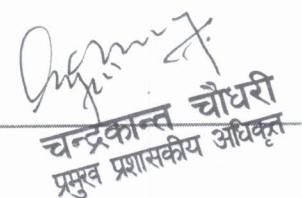 चन्द्रकान्त चौधरी
प्रमुख प्रशासकीय अधिकृत